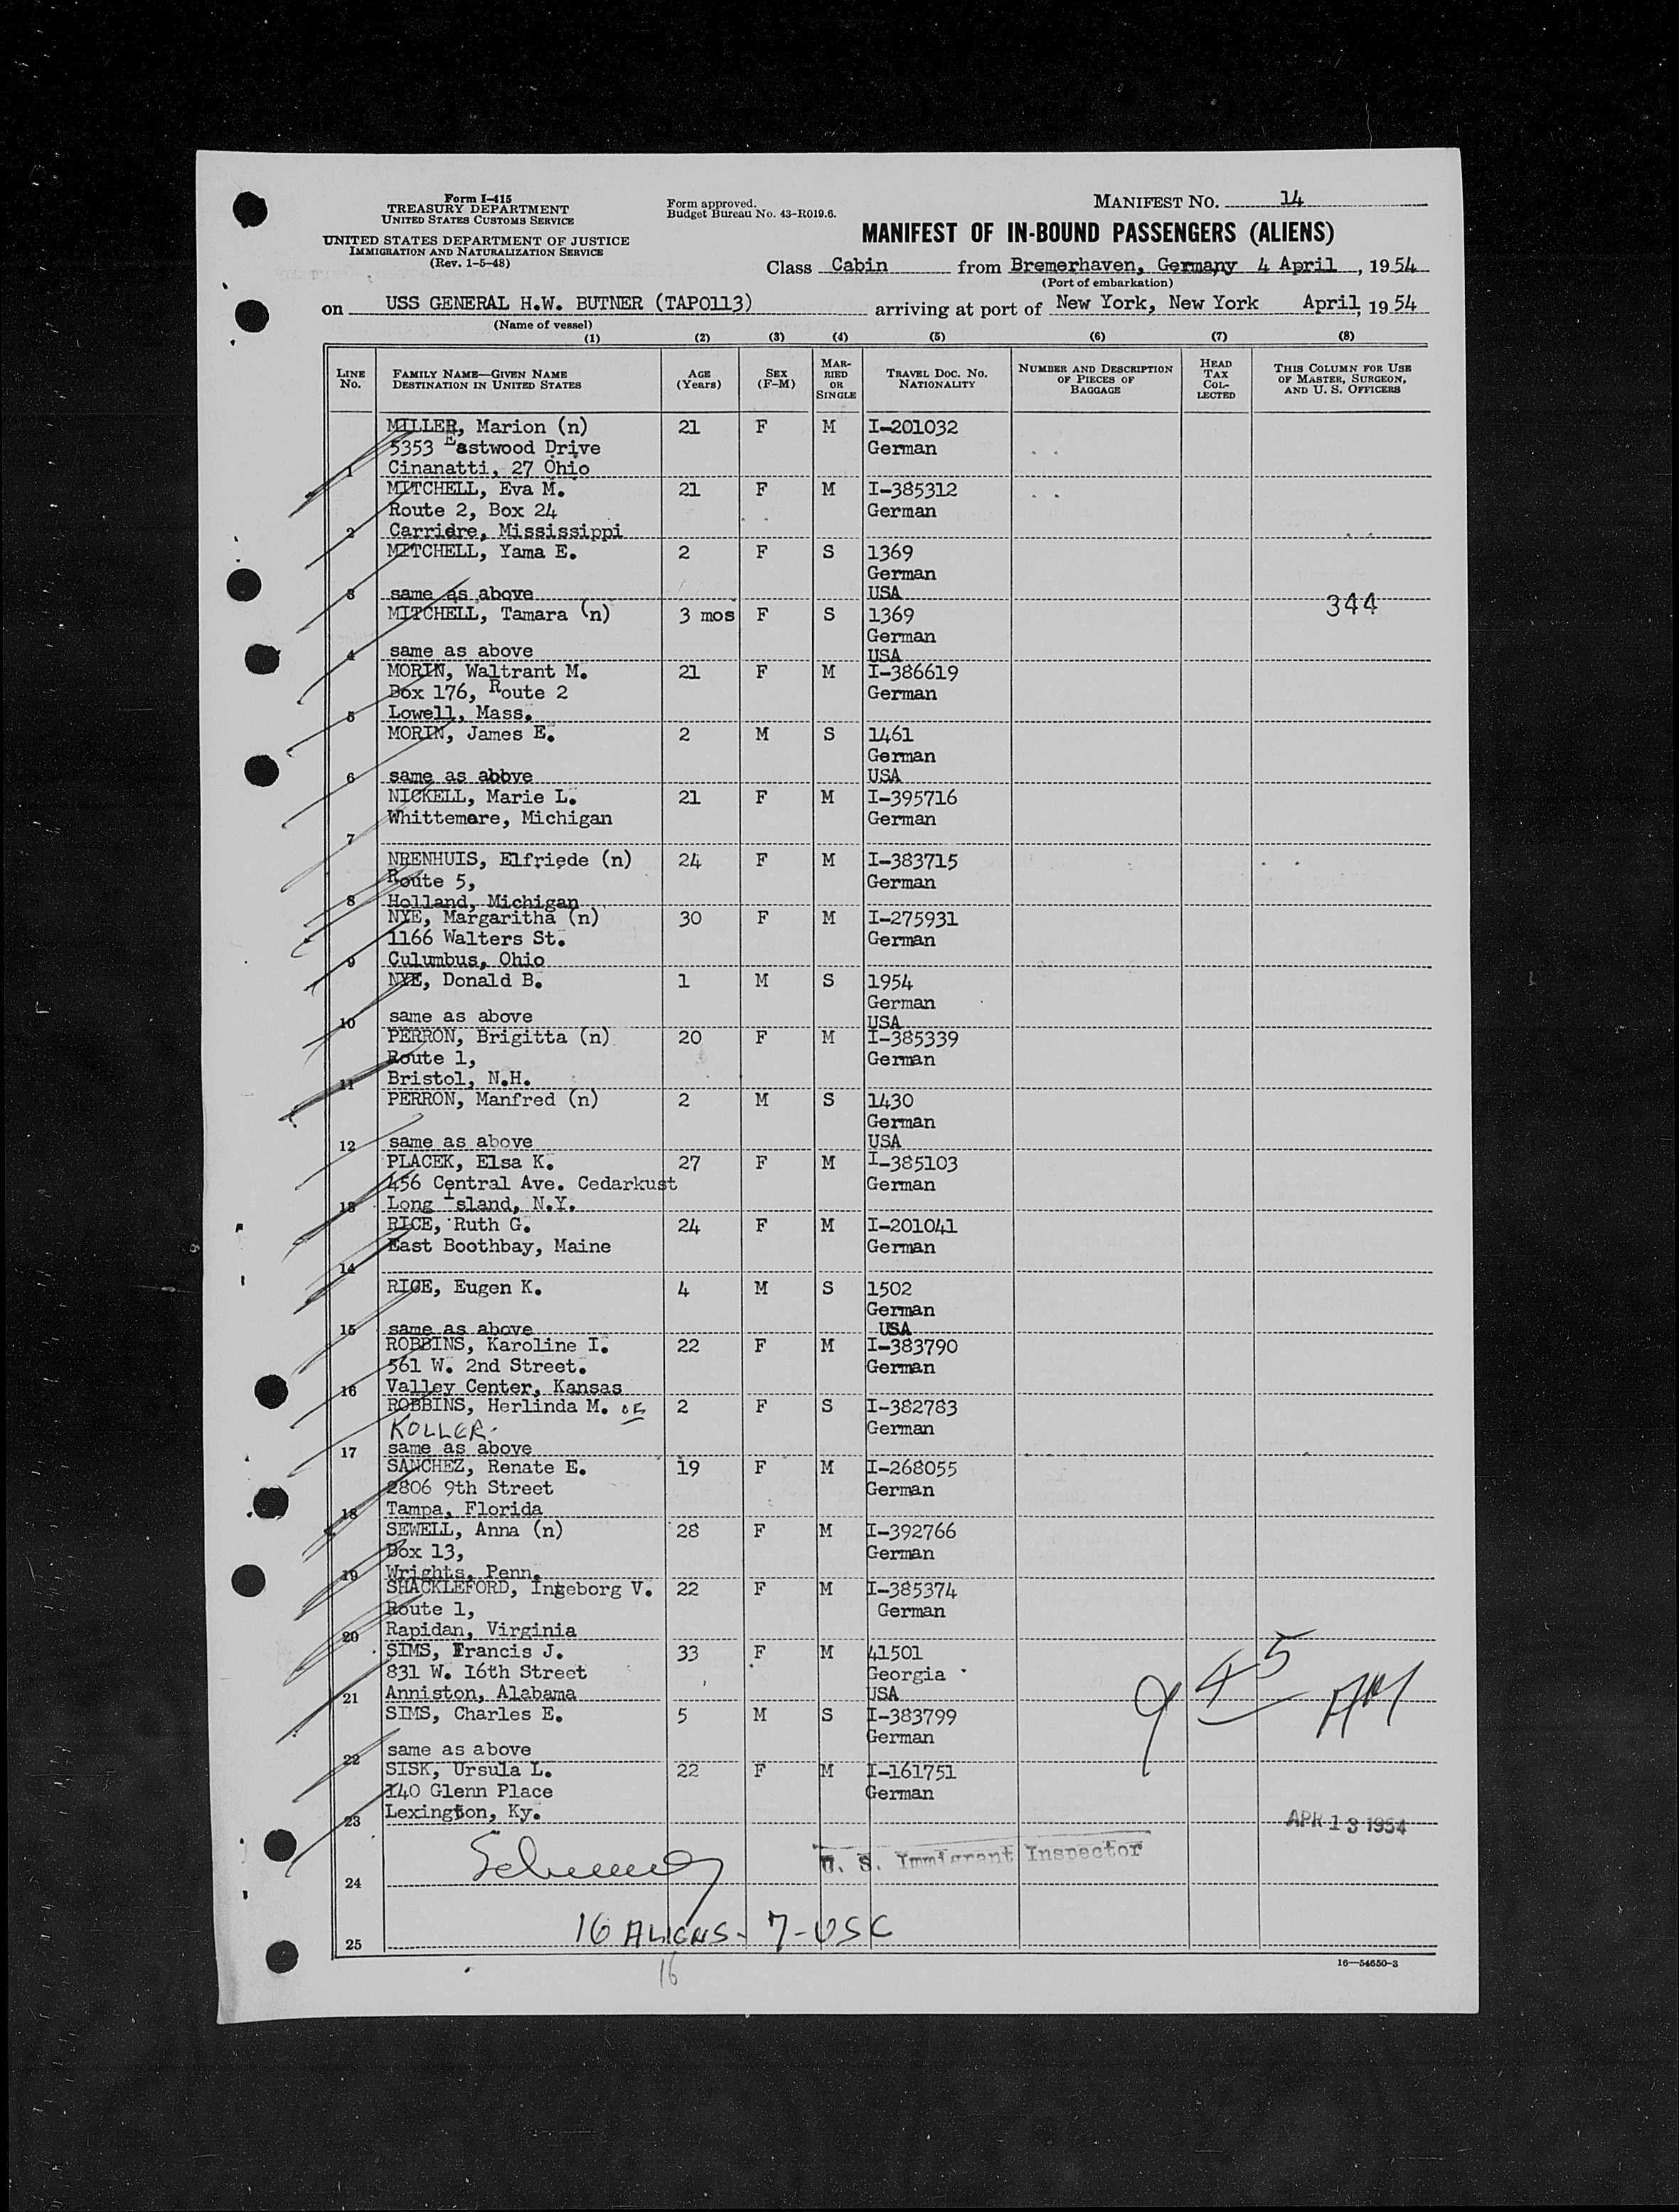 Form I-415
TREASURY DEPARTMENT
UNITED STATES CUSTOMS SERVICE
UNITED STATES DEPARTMENT OF JUSTICE
IMMIGRATION AND NATURALIZATION SERVICE
(Rev. 1-5-48)
Form approved.
Budget Bureau No. 43-R019.6.
MANIFEST NO. 14
MANIFEST OF IN-BOUND PASSENGERS (ALIENS)
Class Cabin from Bremerhaven, Germany 4 April, 1954
(Port of embarkation)
on USS GENERAL H.W. BUTNER (TAPO113) arriving at port of New York, New York April, 1954
(Name of vessel)
(1) (2) (3) (4) (5) (6) (7) (8)
LINE No.
FAMILY NAME—GIVEN NAME
DESTINATION IN UNITED STATES
AGE (Years)
SEX (F-M)
MARRIED OR SINGLE
TRAVEL DOC. NO. NATIONALITY
NUMBER AND DESCRIPTION OF PIECES OF BAGGAGE
HEAD TAX COLLECTED
THIS COLUMN FOR USE OF MASTER, SURGEON, AND U. S. OFFICERS
MILLER, Marion (n) 21 F M I-201032
5353 Eastwood Drive German
1 Cinanatti, 27 Ohio
MITCHELL, Eva M. 21 F M I-385312
Route 2, Box 24 German
2 Carridre, Mississippi
MITCHELL, Yama E. 2 F S 1369
German
3 same as above USA
MITCHELL, Tamara (n) 3 mos F S 1369 344
German
4 same as above USA
MORIN, Waltrant M. 21 F M I-386619
Box 176, Route 2 German
5 Lowell, Mass.
MORIN, James E. 2 M S 1461
German
6 same as abbve USA
NICKELL, Marie L. 21 F M I-395716
Whittemore, Michigan German
7
NBENHUIS, Elfriede (n) 24 F M I-383715
Route 5, German
8 Holland, Michigan
NYE, Margaritha (n) 30 F M I-275931
1166 Walters St. German
9 Culumbus, Ohio
NYE, Donald B. 1 M S 1954
German
10 same as above USA
PERRON, Brigitta (n) 20 F M I-385339
Route 1, German
11 Bristol, N.H.
PERRON, Manfred (n) 2 M S 1430
German
12 same as above USA
PLACEK, Elsa K. 27 F M I-385103
456 Central Ave. Cedarkust German
13 Long Island, N.Y.
RICE, Ruth G. 24 F M I-201041
East Boothbay, Maine German
14
RICE, Eugen K. 4 M S 1502
German
15 same as above USA
ROBBINS, Karoline I. 22 F M I-383790
561 W. 2nd Street. German
16 Valley Center, Kansas
ROBBINS, Herlinda M. OR 2 F S I-382783
KOLLER. German
17 same as above
SANCHEZ, Renate E. 19 F M I-268055
2806 9th Street German
18 Tampa, Florida
SEWELL, Anna (n) 28 F M I-392766
Box 13, German
19 Wrights, Penn.
SHACKLEFORD, Ingeborg V. 22 F M I-385374
Route 1, German
20 Rapidan, Virginia
SIMS, Francis J. 33 F M 41501
831 W. 16th Street Georgia
21 Anniston, Alabama USA
SIMS, Charles E. 5 M S I-383799
German
22 same as above
SISK, Ursula L. 22 F M I-161751
140 Glenn Place German
23 Lexington, Ky.
9 45 AM
APR 13 1954
U. S. Immigrant Inspector
24
16 ALIENS - 7 - USC
25
16
16—54650-3